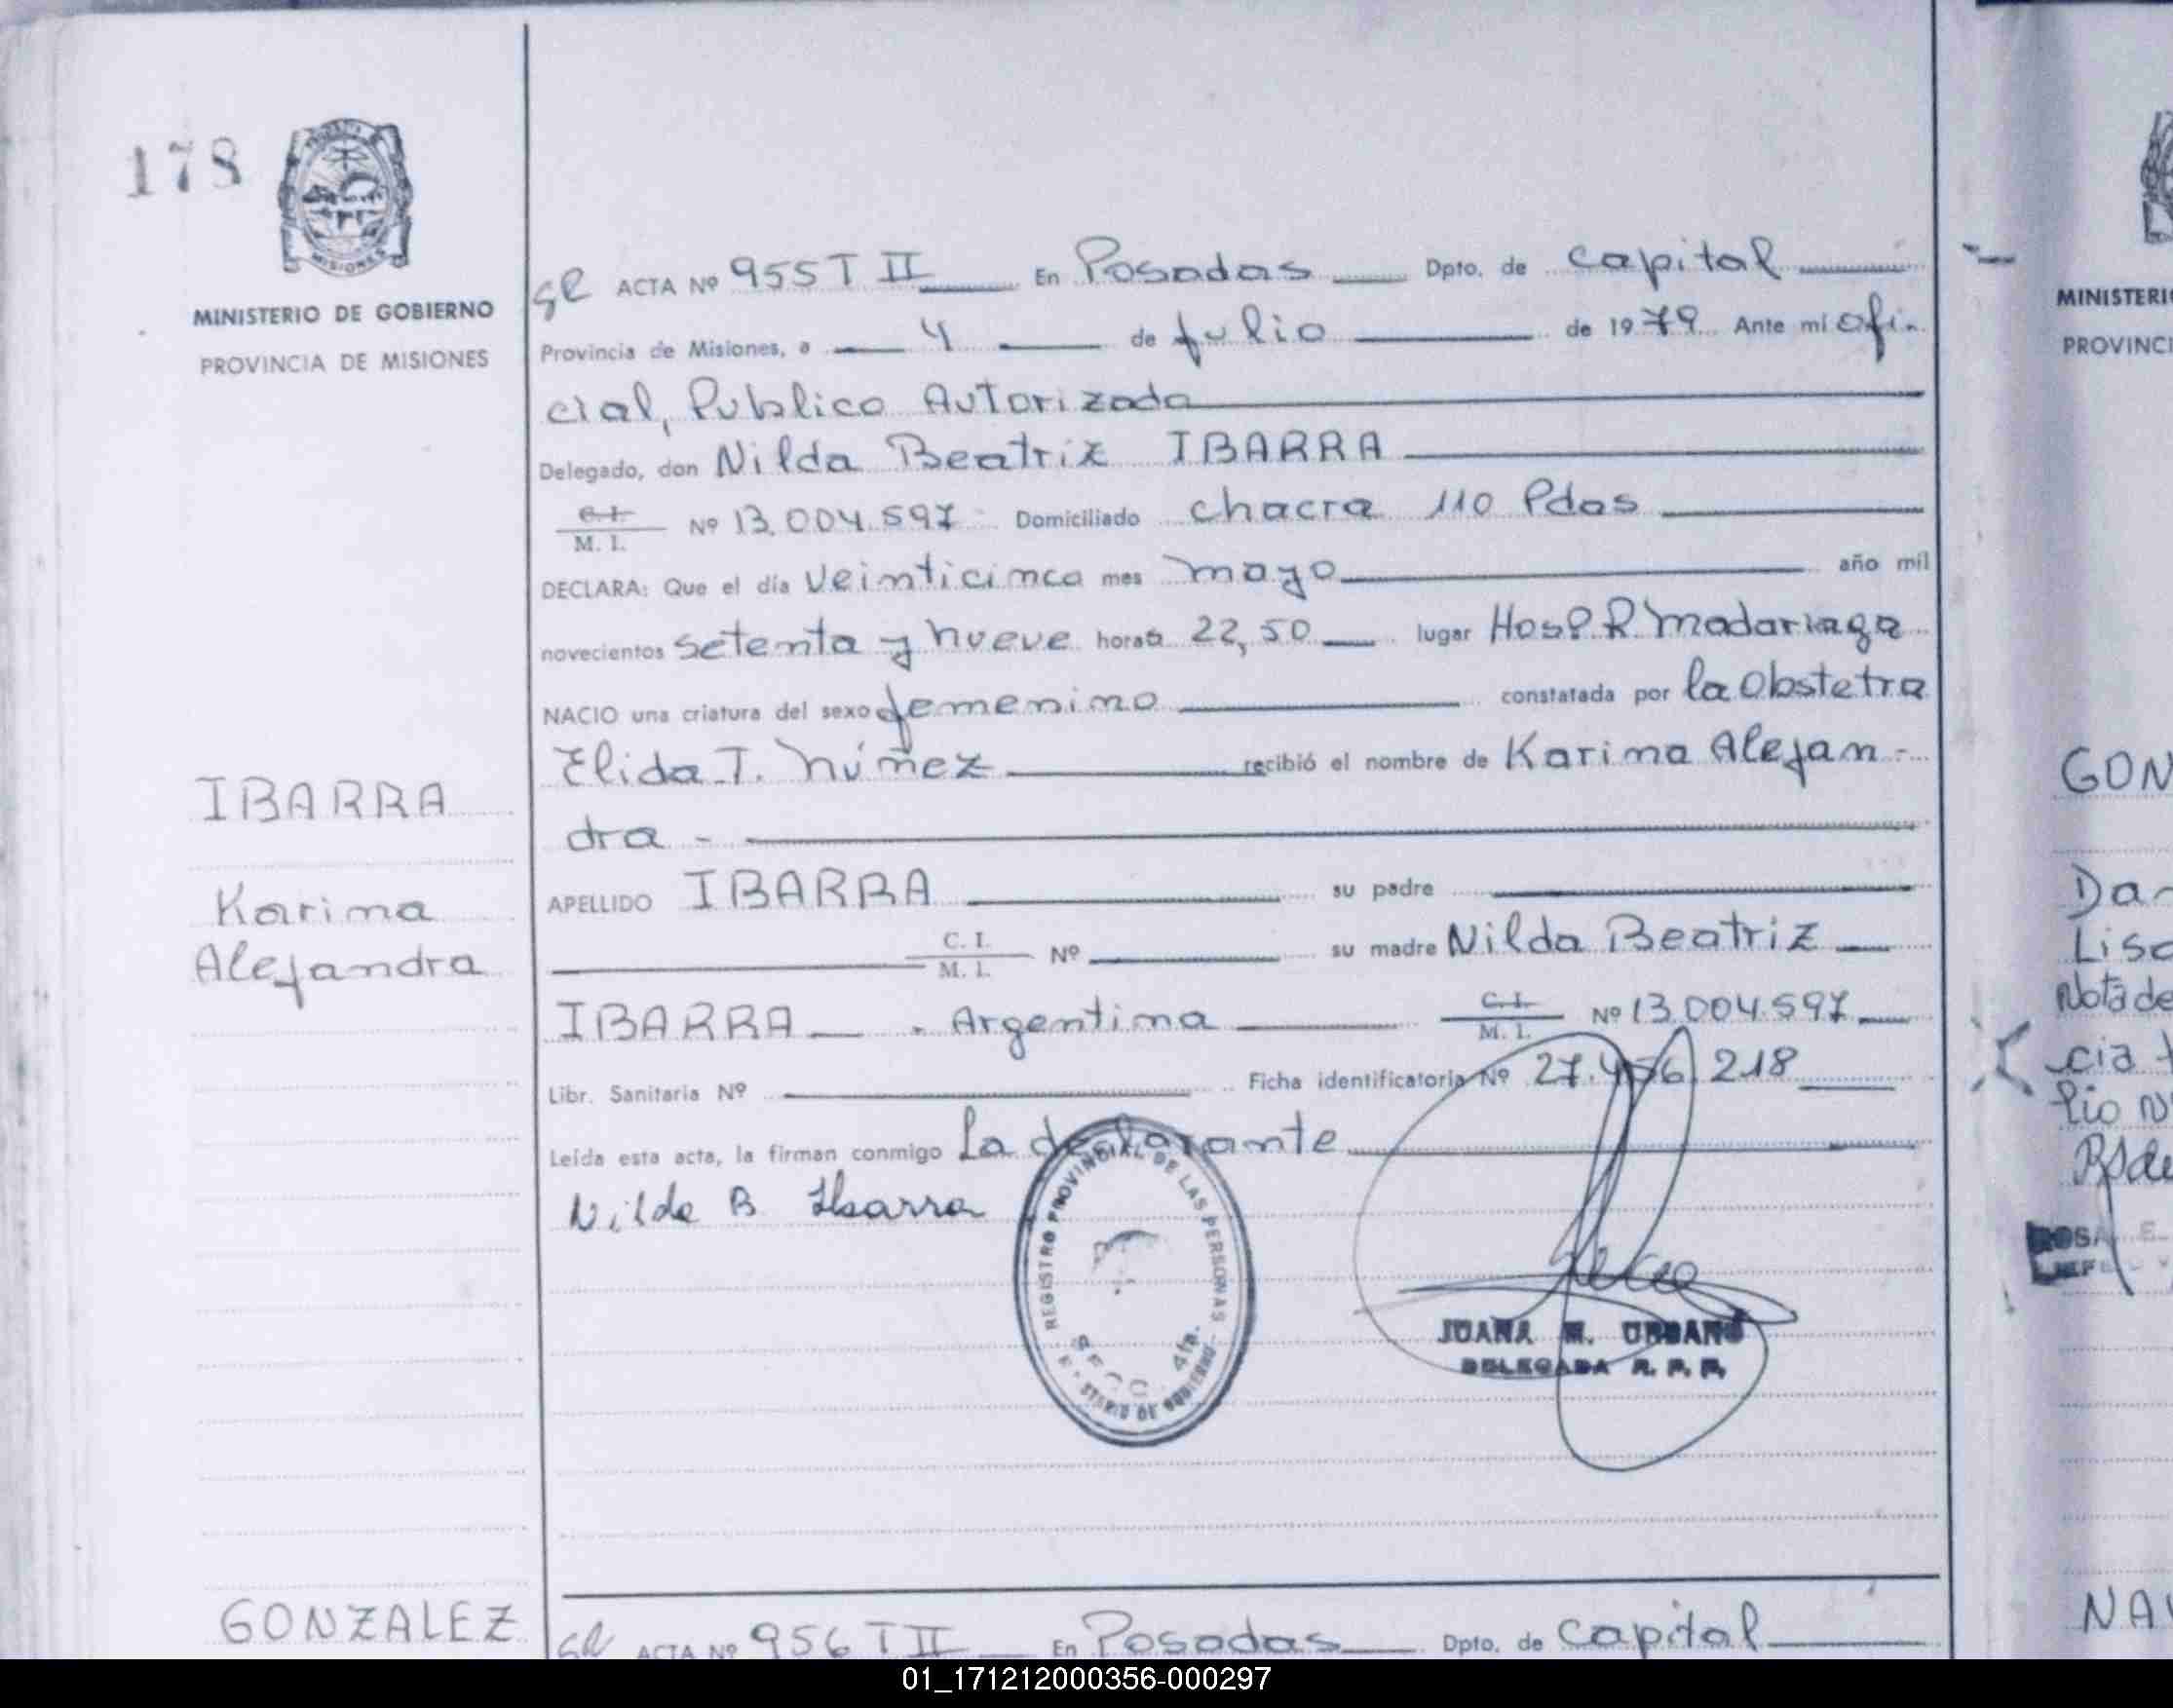 178
MISIONES
MINISTERIO DE GOBIERNO
PROVINCIA DE MISIONES
IBARRA
Karina
Alejandra
GONZALEZ
ACTA Nº 955 T II En Posadas Dpto. de Capital
Provincia de Misiones, a 4 de Julio de 1979 Ante mi ofi
cial, Publico Autorizado
Delegado, don Nilda Beatriz IBARRA
C.I. / M. I. Nº 13.004.597 Domiciliado chacra 110 Pdas
DECLARA: Que el día veinticinco mes mayo año mil
novecientos setenta y nueve horas 22,50 lugar Hosp R. Madariaga
NACIO una criatura del sexo femenino constatada por la Obstetra
Elida T. Núñez recibió el nombre de Karina Alejan-
dra -
APELLIDO IBARRA su padre
C. I. / M. I. Nº su madre Nilda Beatriz
IBARRA - Argentina C.I. / M. I. Nº 13.004.597
Libr. Sanitaria Nº Ficha identificatoria Nº 27.456.218
Leída esta acta, la firman conmigo La declarante
Nilda B Ibarra
REGISTRO PROVINCIAL DE LAS PERSONAS
SECC. 4ta.
DE GOBIERNO
JUANA M. URBANO
DELEGADA R. P. P.
ACTA Nº 956 T II En Posadas Dpto. de Capital
MINISTERI
PROVINCI
GON
Da
Lis
Nota de
cia
lio
ROSA E.
JEFE
NA
01_171212000356-000297